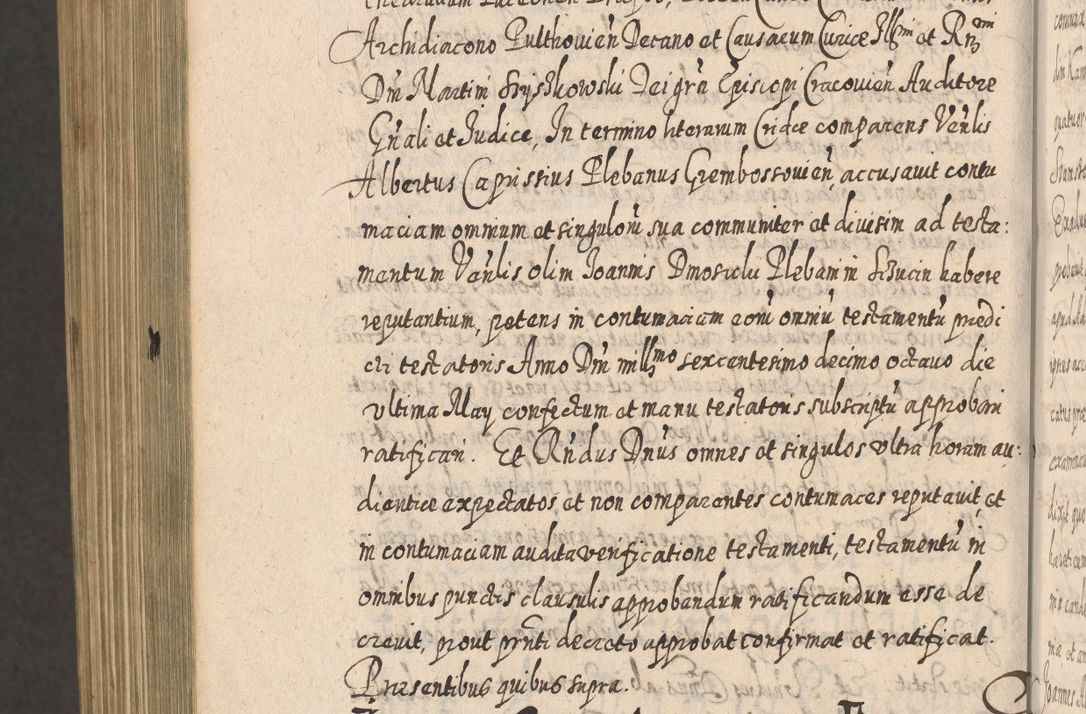 Archidiacono Pulthovien̄ Decano et Causarum Curiæ Illmi et Rmi
Dn̄i Martini Szyszkowski Dei gr̄a Episcopi Cracovien̄ Auditore
Gn̄ali et Iudice, In termino literarum Cridæ comparens Ven̄lis
Albertus Caprissius Plebanus Grembossovien̄, accusavit contu
maciam omnium et singulorū sua communiter et divisim ad testa:
mentum Ven̄lis olim Ioannis Dmosiclii Plebani in habere
reputantium, petens in contumaciam eorū omniū testamentū predi
cti testatoris Anno Dn̄i millmo sexcentesimo decimo octavo die
ultima May confectum et manu testatoris subscriptū approbari
ratificari. Et Rn̄dus Dn̄us omnes et singulos ultra horam au:
dientiæ expectatos et non comparentes contumaces reputavit, et
in contumaciam audita verificatione testamenti, testamentū in
omnibus punctis clausulis approbandum ratificandum esse de
crevit, prout prn̄ti decreto approbat confirmat et ratificat.
Præsentibus quibus supra.